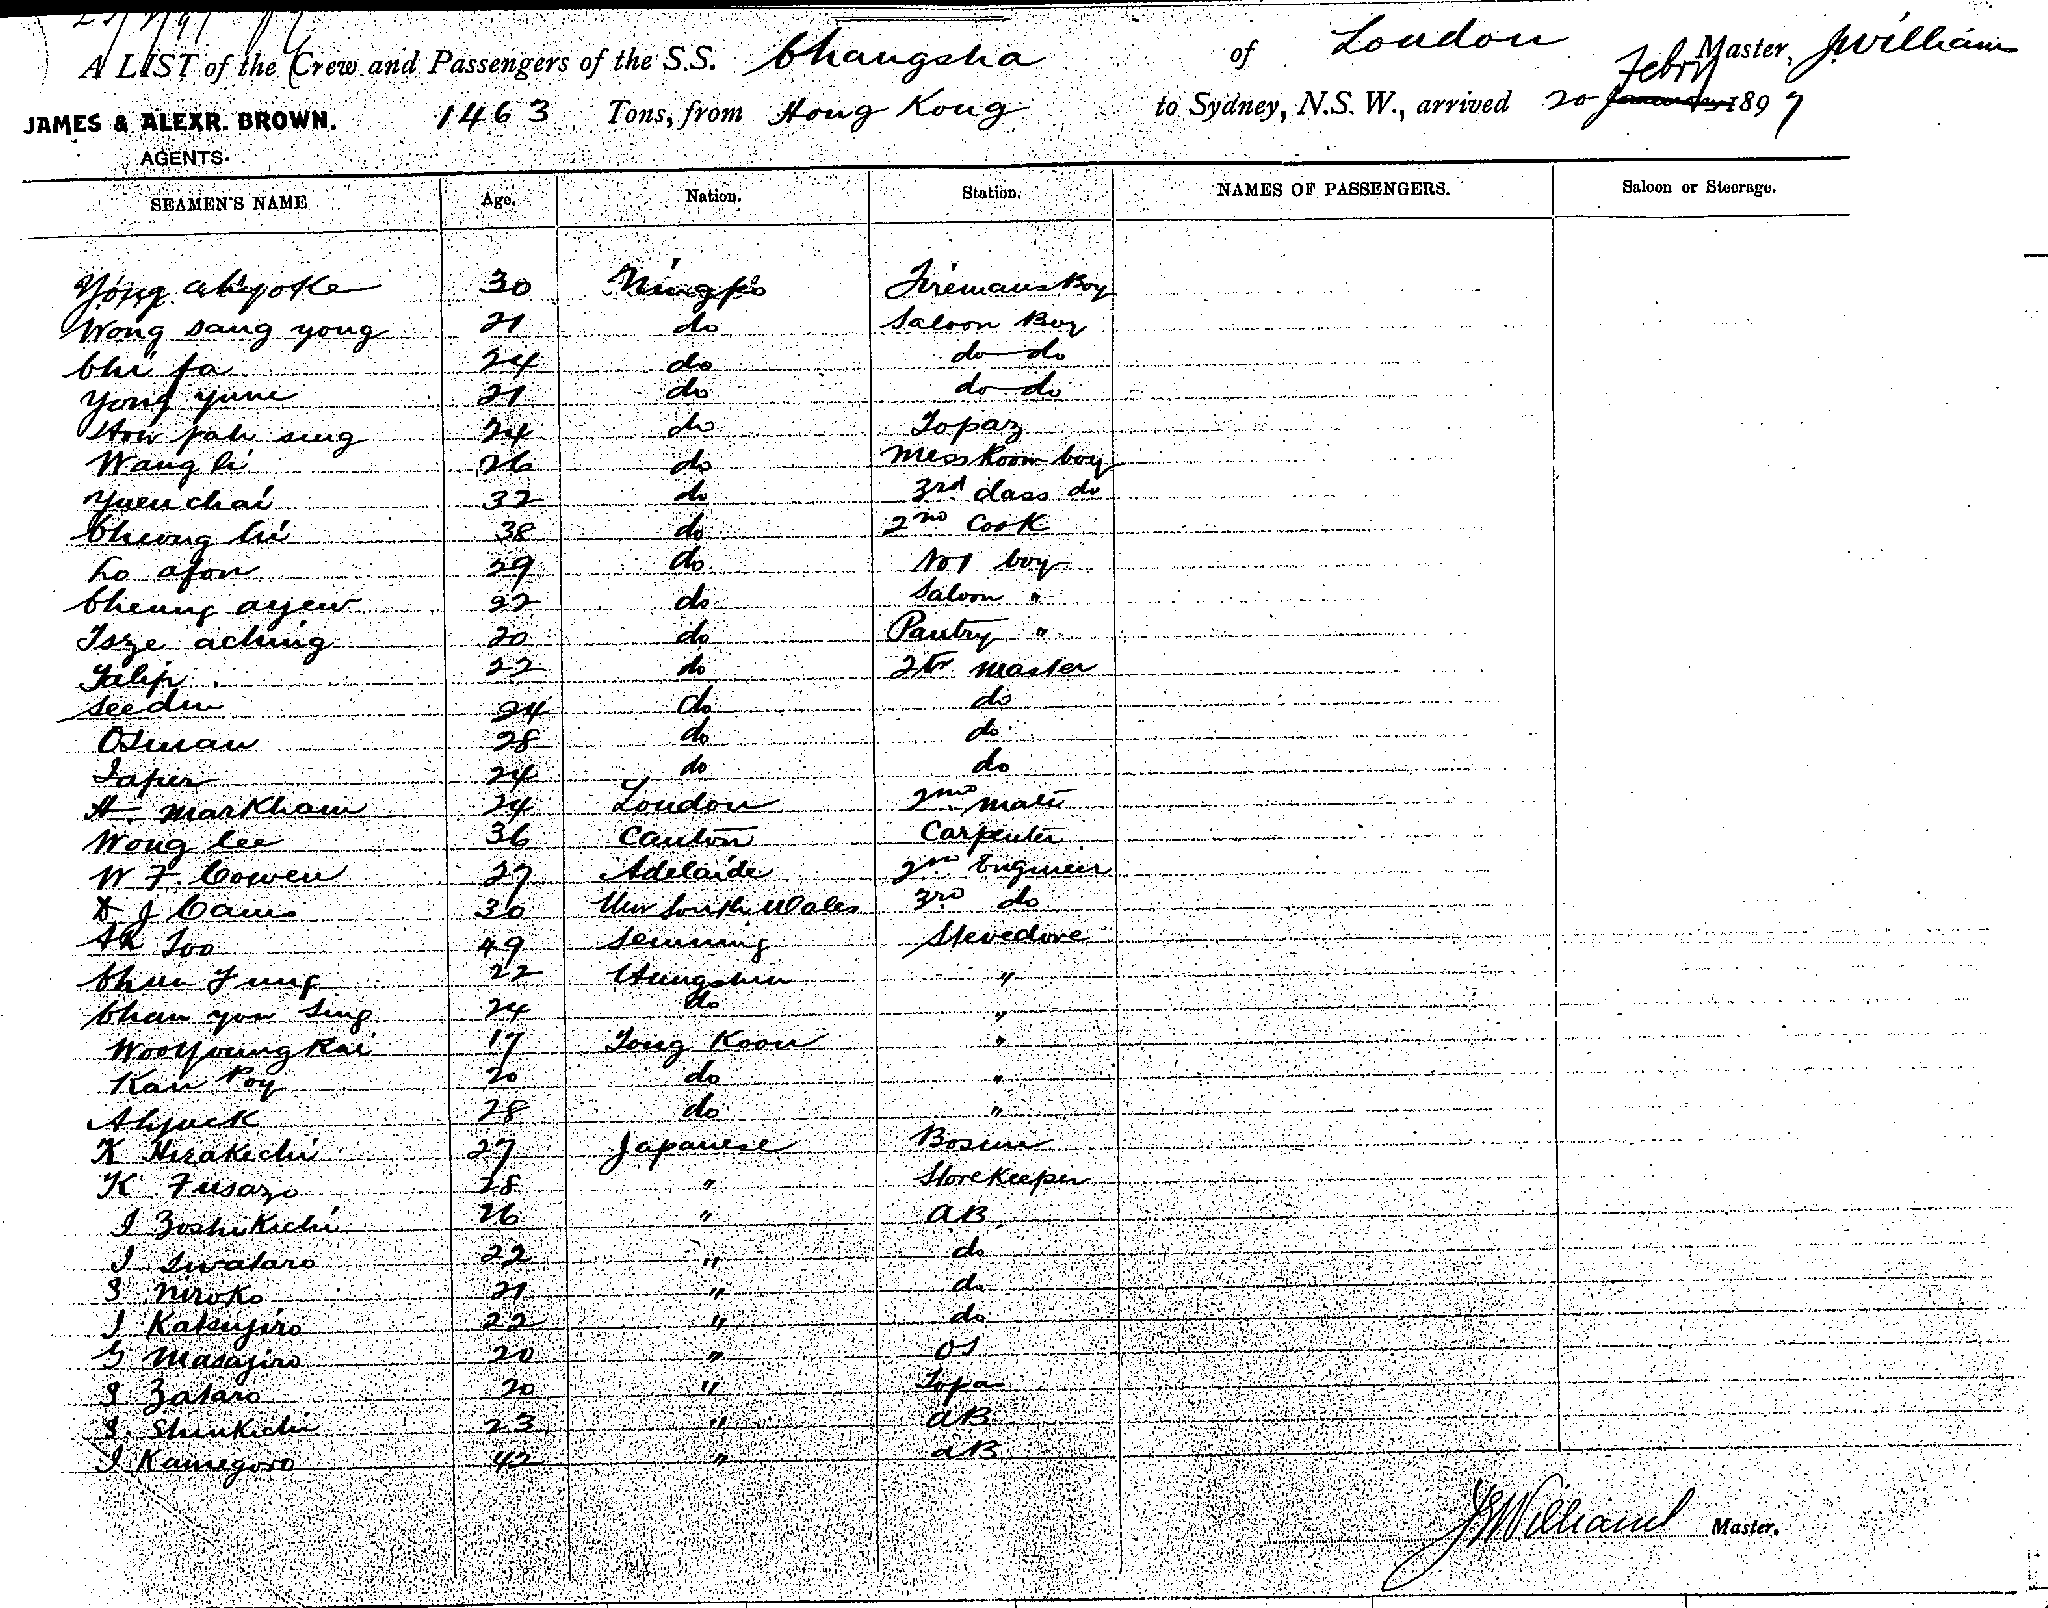 A LIST of the Crew and Passengers of the S.S. Changsha of London Master, J Williams
JAMES & ALEXR. BROWN. 1463 Tons, from Hong Kong to Sydney, N.S.W., arrived 20 Febry January 1897
AGENTS.
SEAMEN'S NAME Age. Nation. Station. NAMES OF PASSENGERS. Saloon or Steerage.
Yong ahyoke 30 Ningpo Firemans Boy
Wong sang yong 21 do Saloon Boy
Chi fa 24 do do do
Yong yune 21 do do do
How pah sing 24 do Topaz
Wang li 26 do Mess Room boy
Yuen chai 32 do 3rd class do
Cheong lii 38 do 2nd Cook
Lo afon 29 do No 1 boy
Cheung ayew 22 do Saloon "
Tsze aching 20 do Pantry "
Talip 22 do 2tr master
Seedin 24 do do
Osman 28 do do
Taper 24 do do
H. Markham 24 London 2nd mate
Wong lee 36 Canton Carpenter
W F. Cowen 27 Adelaide 2nd Engineer
D J Cains 30 New South Wales 3rd do
Ah Too 49 Sewning Stevedore
Chan Fung 22 Hungshun "
Chan yon Sing 24 do "
Woo Young Kai 17 Tong Koon "
Kan Poy 20 do "
Ahjack 28 do "
K Hirakichi 27 Japanese Bosun
K Fusazo 28 " Storekeeper
I Zoshikichi 26 " AB
I Swataro 22 " do
S Niroko 21 " do
I Katsujiro 22 " do
G Masajiro 20 " OS
S Zataro 20 " Topas
S. Shinkichi 23 " AB
I Kamegoro 42 " AB
J Williams Master.